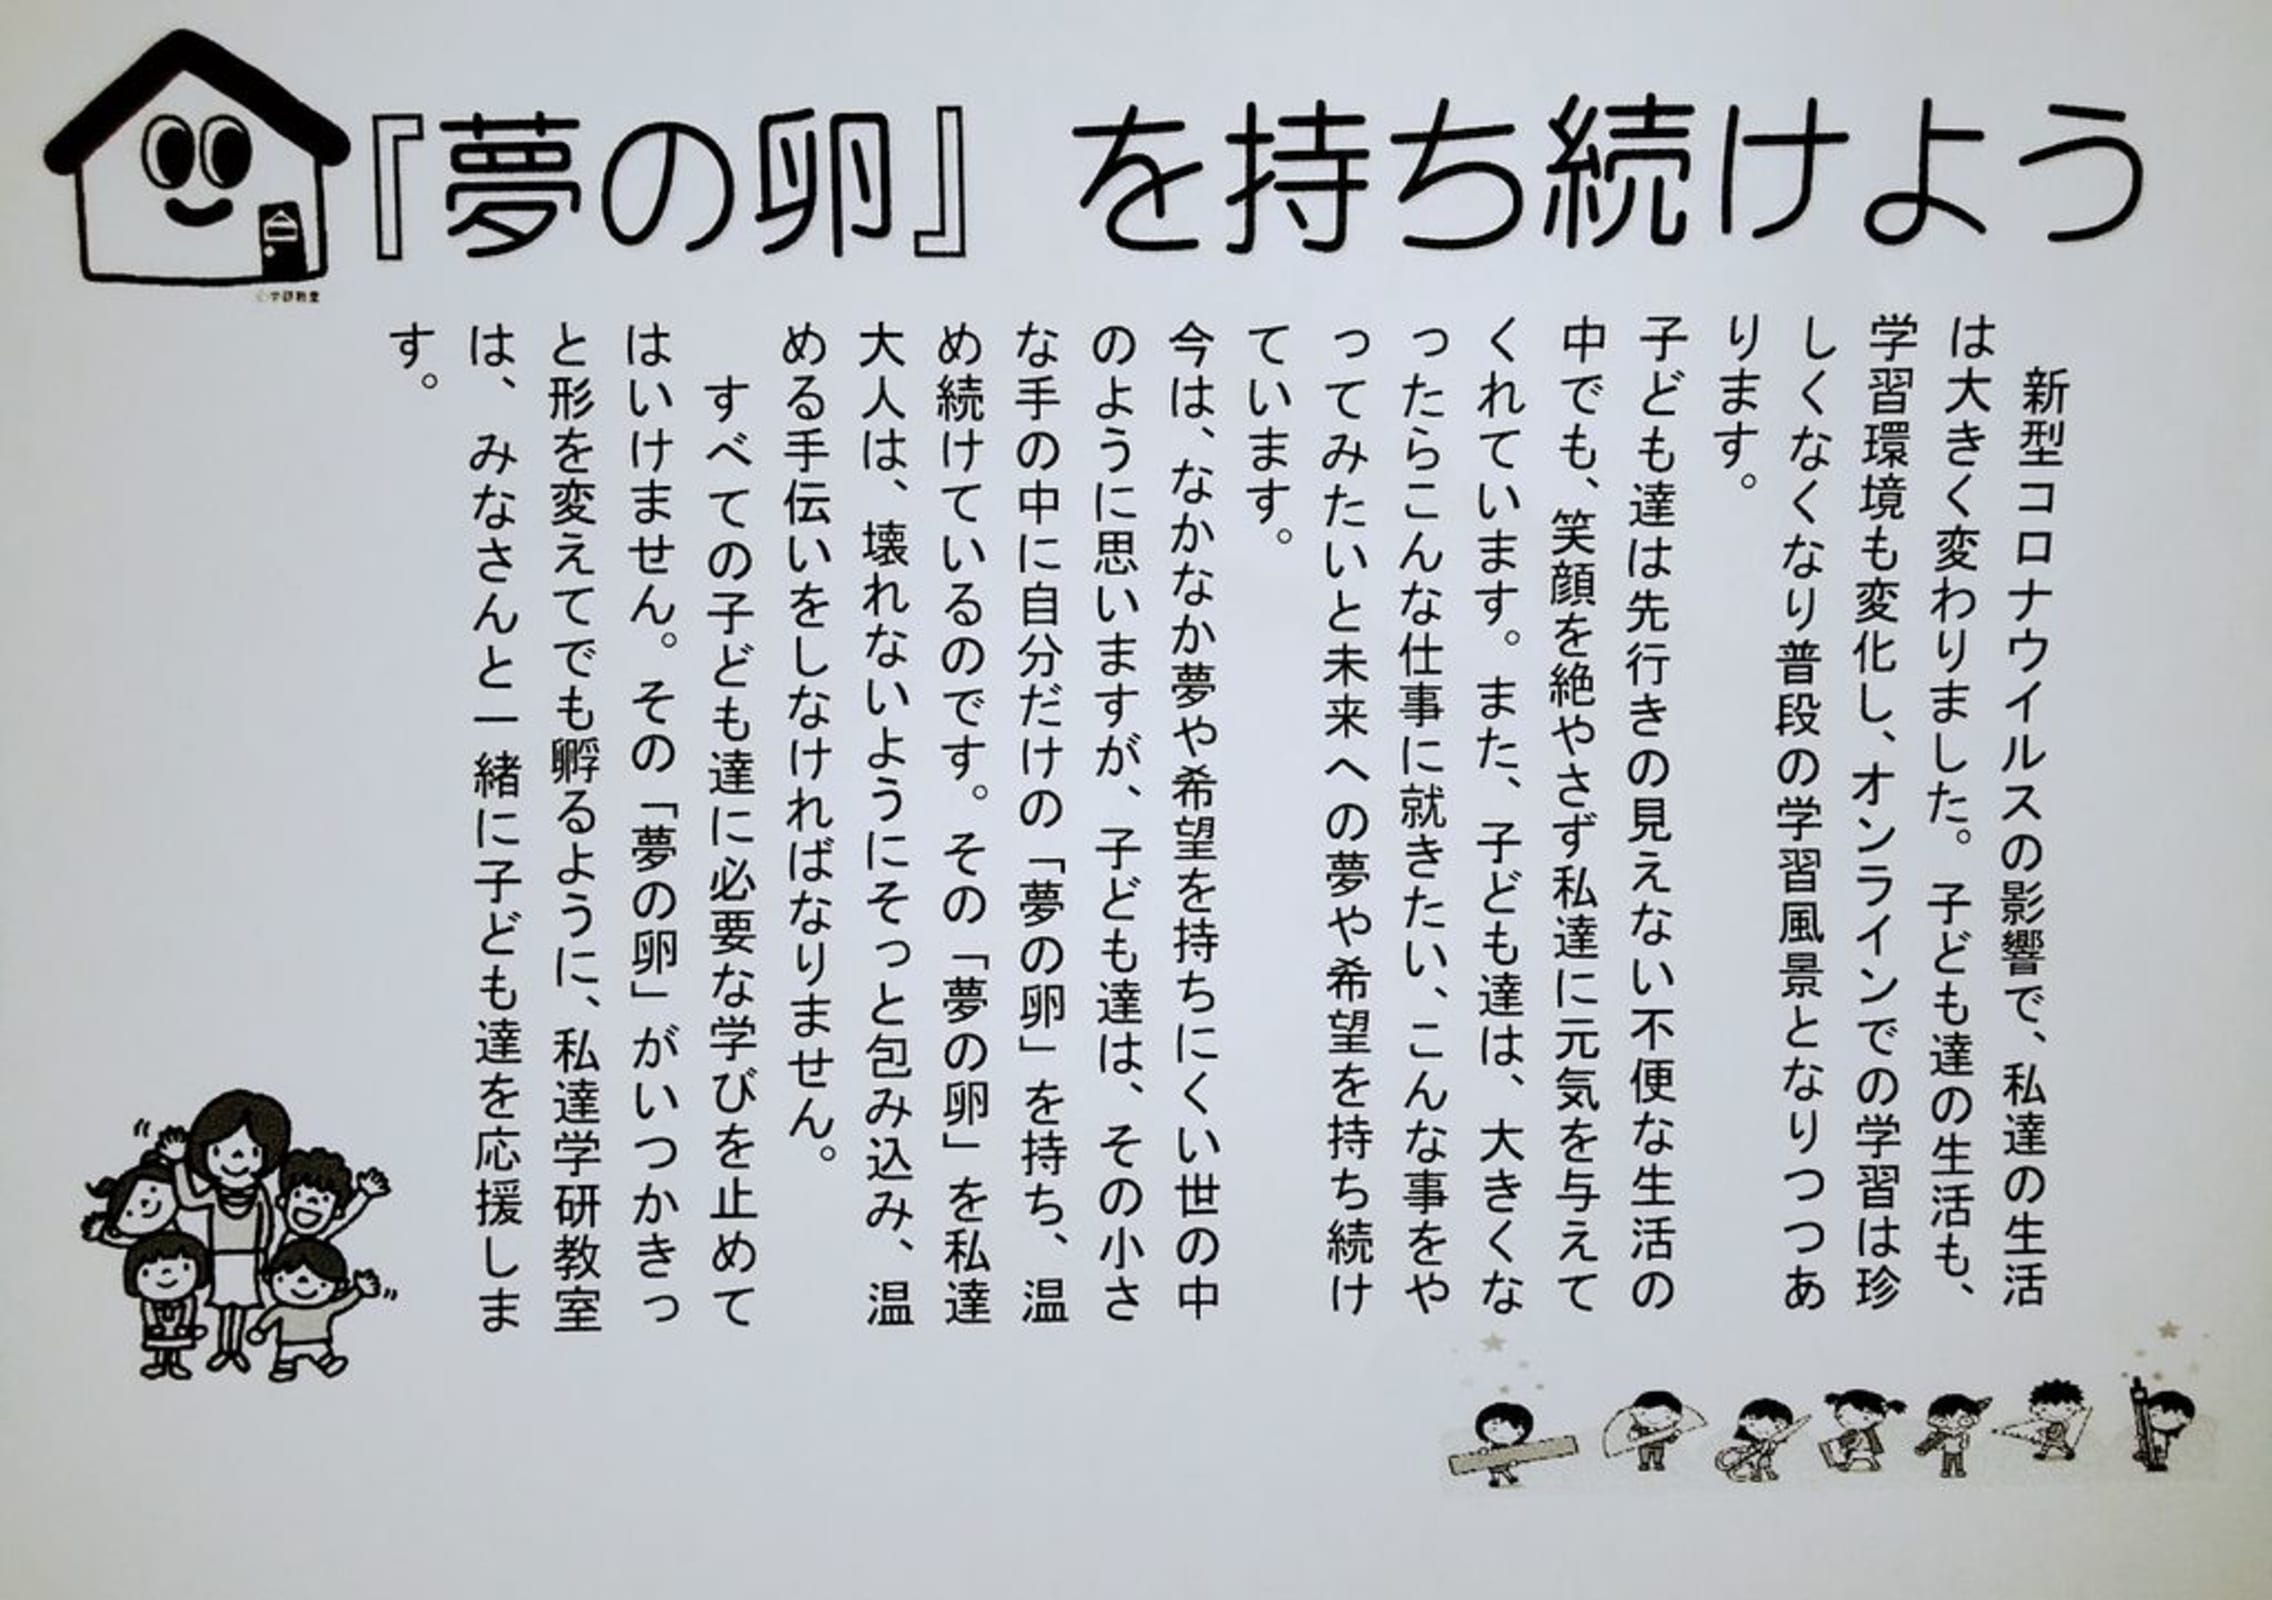 『夢の卵』 を持ち続けよう
新型コロナウイルスの影響で、私達の生活
は大きく変わりました。子ども達の生活も、
学習環境も変化し、オンラインでの学習は珍
しくなくなり普段の学習風景となりつつあ
ります。
子ども達は先行きの見えない不便な生活の
中でも、笑顔を絶やさず私達に元気を与えて
くれています。また、子ども達は、大きくな
ったらこんな仕事に就きたい、こんな事をや
ってみたいと未来への夢や希望を持ち続け
ています。
今は、なかなか夢や希望を持ちにくい世の中
のように思いますが、子ども達は、その小さ
な手の中に自分だけの「夢の卵」を持ち、温
め続けているのです。その「夢の卵」を私達
大人は、壊れないようにそっと包み込み、温
める手伝いをしなければなりません。
すべての子ども達に必要な学びを止めて
はいけません。その「夢の卵」がいつかきっ
と形を変えてでも孵るように、私達学研教室
は、みなさんと一緒に子ども達を応援しま
す。
©学研教室